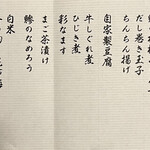 だし巻き玉子
ちんちん揚げ
自家製豆腐
牛しぐれ煮
彩なます
ひじき煮
まご茶漬け
鯵のなめろう
白米